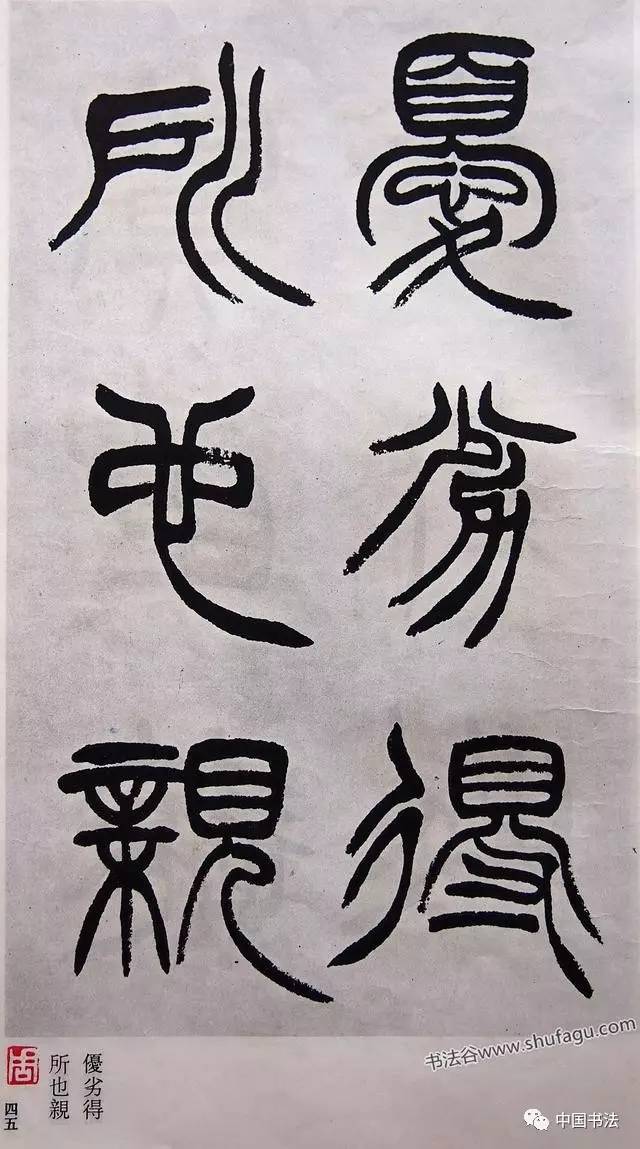 憂劣得
所也親
優劣得
所也親
四五
书法谷www.shufagu.com
中国书法